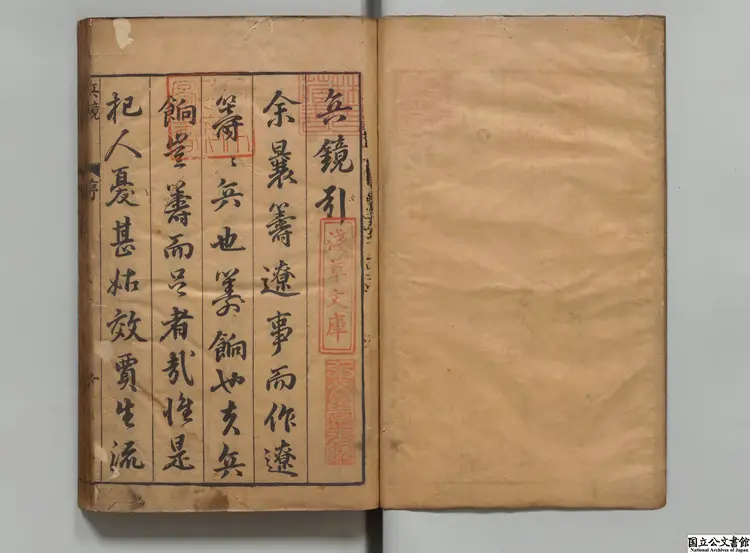 兵鏡引
余曩籌遼事而作遼
籌〻兵也籌餉也夫兵
餉豈籌而已者哉惟是
杞人憂甚姑效賈生流
兵鏡
序
淺草文庫
国立公文書館
National Archives of Japan